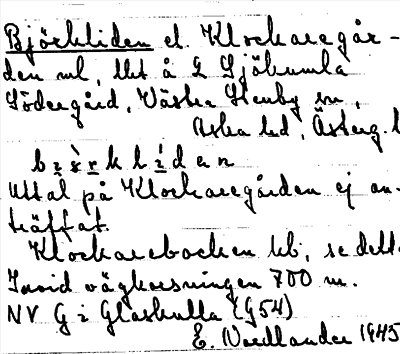 Björkliden el. Klockaregår-
den ml, lht å 2 Sjökumla
Södergård, Västra Stenby sn,
Aska hd, Österg. l
Uttal på Klockaregården ej an-
träffat.
Klockarebacken kb, se dett.
Invid vägkorsningen 700 m.
NV G i Glaskulla (954)
E. Nordlander 1945